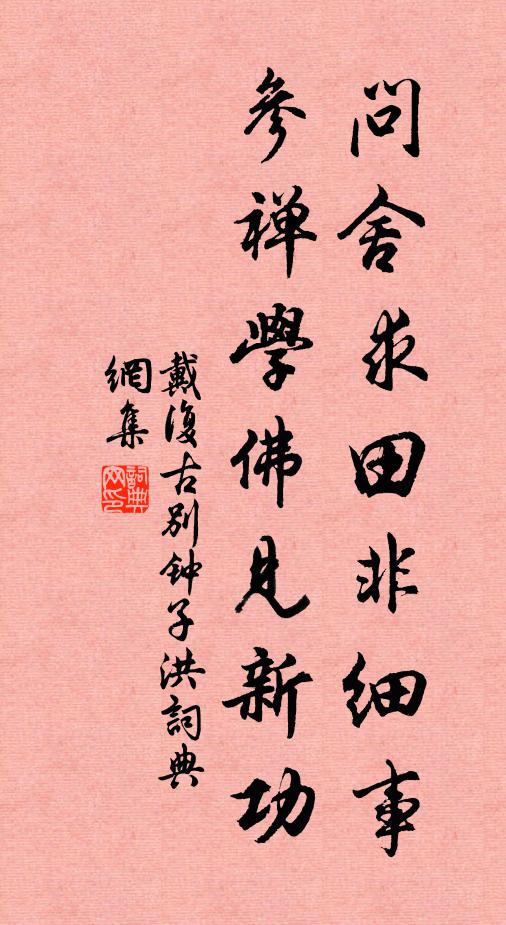 問舍求田非細事
參禅學佛見新功
戴復古別钟子洪詞典
網集
詞典
网印